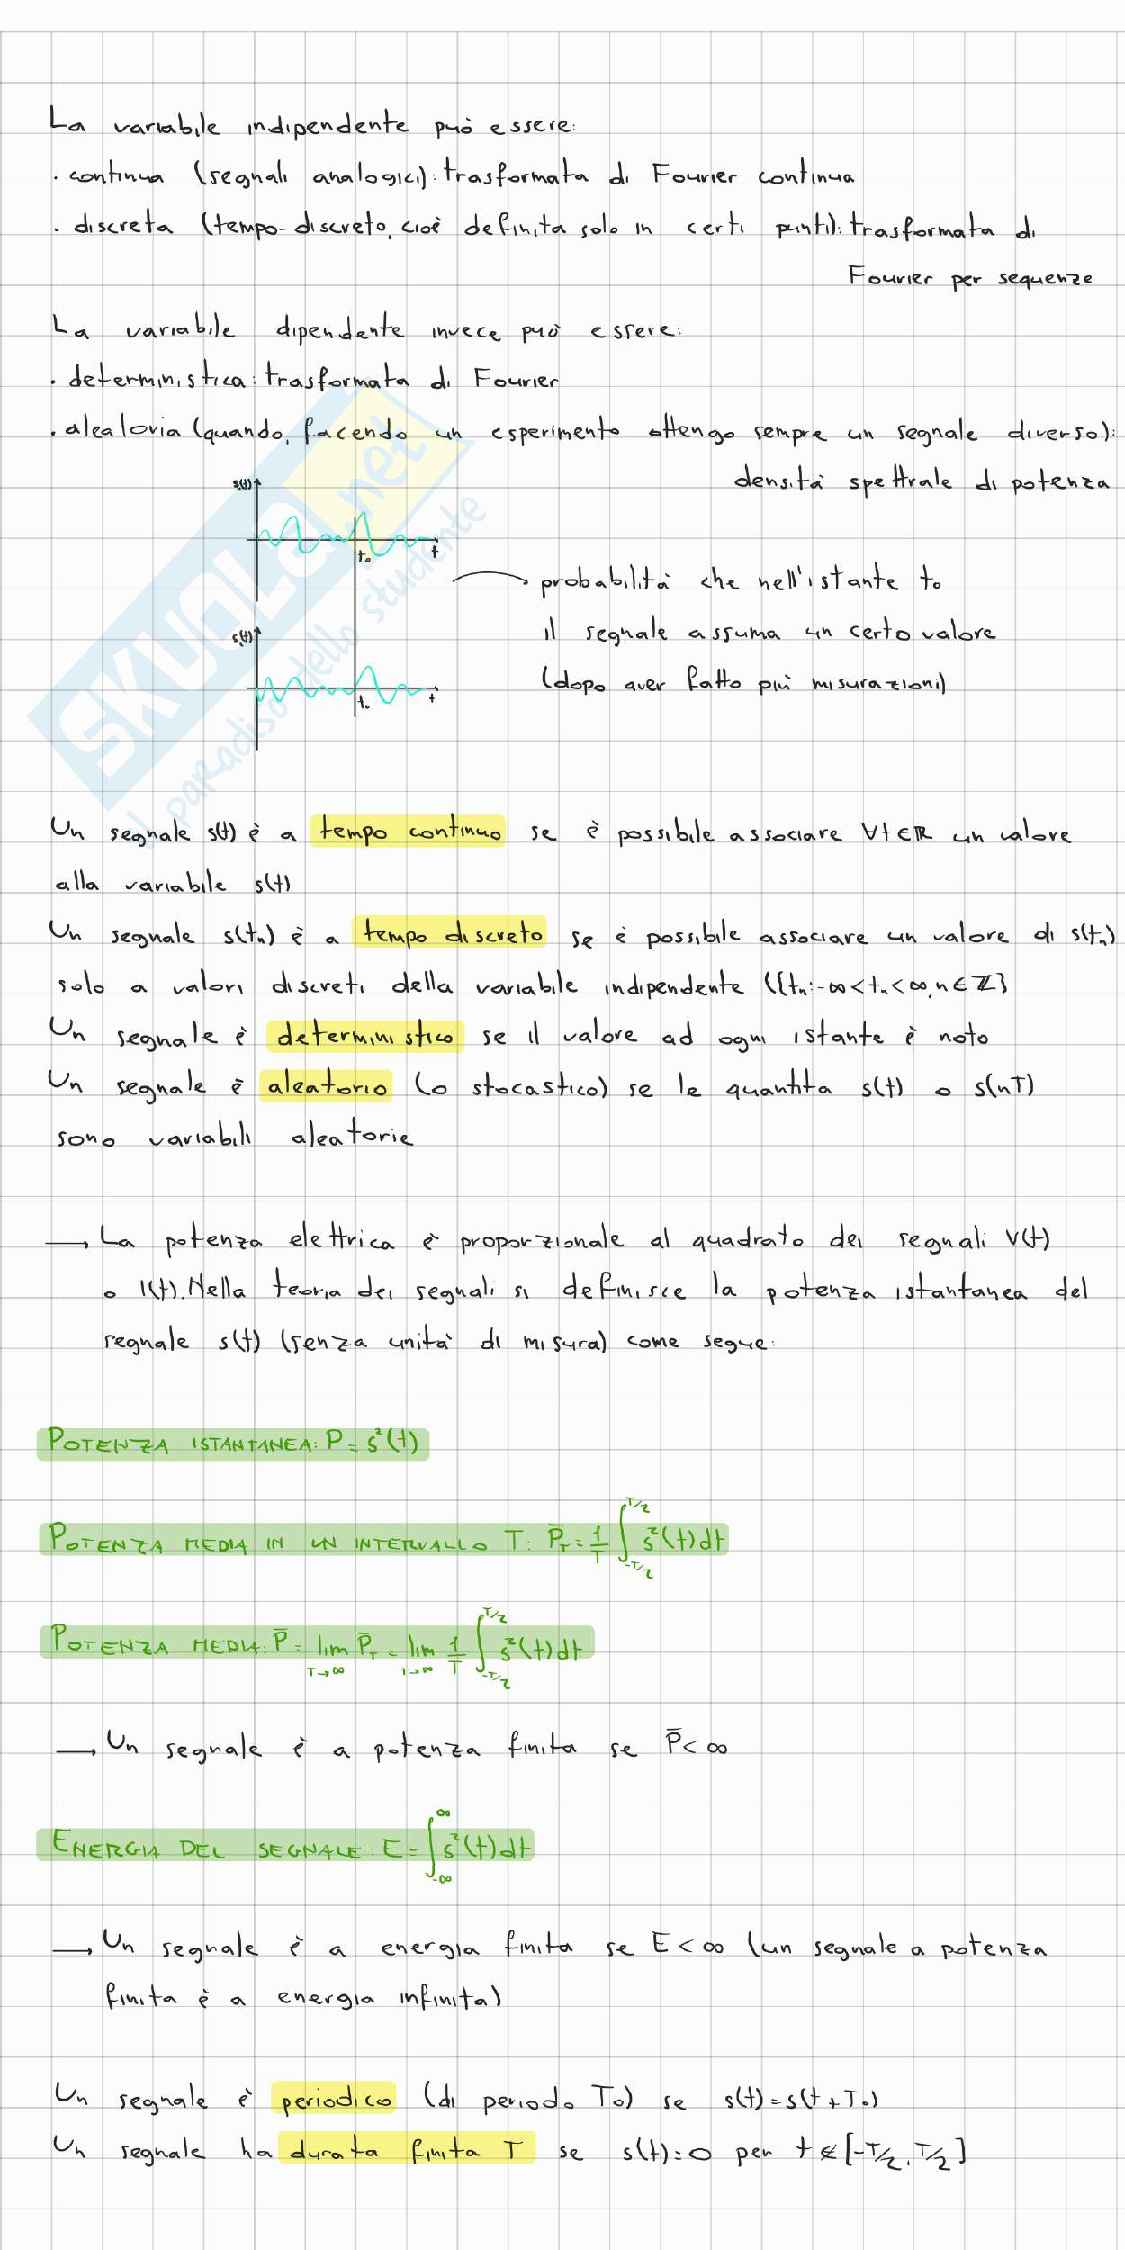 La variabile indipendente può essere:
. continua (segnali analogici): trasformata di Fourier continua
. discreta (tempo-discreto, cioè definita solo in certi punti): trasformata di
Fourier per sequenze
La variabile dipendente invece può essere:
. deterministica: trasformata di Fourier
. alealoria (quando, facendo un esperimento ottengo sempre un segnale diverso):
densità spettrale di potenza
s(t)
t₀ t
probabilità che nell'istante t₀
il segnale assuma un certo valore
s(t)
(dopo aver fatto più misurazioni)
t₀ t
SKUOLA.net
il paradiso dello studente
Un segnale s(t) è a tempo continuo se è possibile associare ∀t∈ℝ un valore
alla variabile s(t)
Un segnale s(tₙ) è a tempo discreto se è possibile associare un valore di s(tₙ)
solo a valori discreti della variabile indipendente ({tₙ:-∞<tₙ<∞,n∈ℤ}
Un segnale è deterministico se il valore ad ogni istante è noto
Un segnale è aleatorio (o stocastico) se le quantita s(t) o s(nT)
sono variabili aleatorie
→ La potenza elettrica è proporzionale al quadrato dei segnali V(t)
o I(t). Nella teoria dei segnali si definisce la potenza istantanea del
segnale s(t) (senza unità di misura) come segue:
POTENZA ISTANTANEA: P = s²(t)
POTENZA MEDIA IN UN INTERVALLO T: P̄_T = 1/T ∫_{-T/2}^{T/2} s²(t)dt
POTENZA MEDIA: P̄ = lim_{T→∞} P̄_T = lim_{T→∞} 1/T ∫_{-T/2}^{T/2} s²(t)dt
→ Un segnale è a potenza finita se P̄<∞
ENERGIA DEL SEGNALE: E = ∫_{-∞}^{∞} s²(t)dt
→ Un segnale è a energia finita se E<∞ (un segnale a potenza
finita è a energia infinita)
Un segnale è periodico (di periodo T₀) se s(t)=s(t+T₀)
Un segnale ha durata finita T se s(t)=0 per t∉[-T/2,T/2]